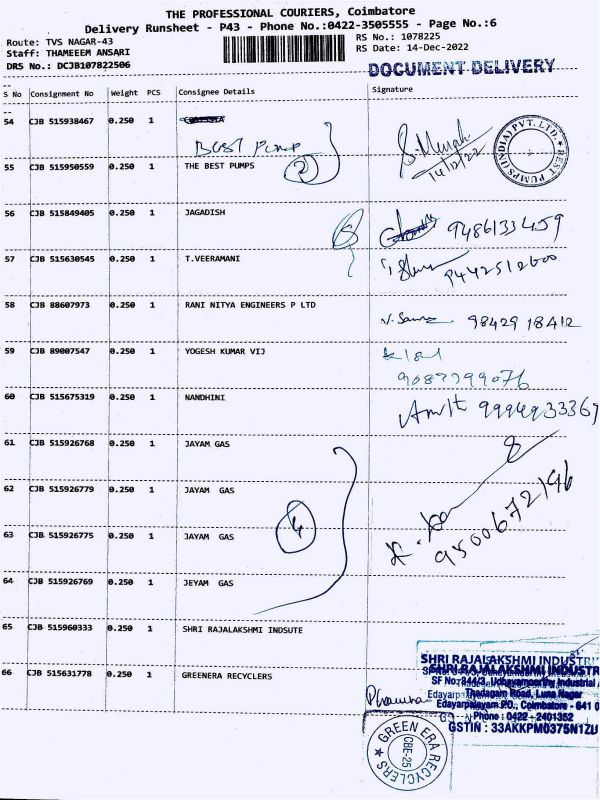 THE PROFESSIONAL COURIERS, Coimbatore
Delivery Runsheet - P43 - Phone No.:0422-3505555 - Page No.:6
Route: TVS NAGAR-43
RS No.: 1078225
Staff: THAMEEEM ANSARI
RS Date: 14-Dec-2022
DRS No.: DCJB107822506
DOCUMENT DELIVERY
S No Consignment No Weight PCS Consignee Details Signature
54 CJB 515938467 0.250 1
BEST Pump
14/12/22
BEST PUMPS (INDIA) PVT. LTD.
55 CJB 515950559 0.250 1 THE BEST PUMPS 2
56 CJB 515849405 0.250 1 JAGADISH 9486133459
57 CJB 515630545 0.250 1 T.VEERAMANI 9442512600
58 CJB 88607973 0.250 1 RANI NITYA ENGINEERS P LTD
98429 18412
59 CJB 89007547 0.250 1 YOGESH KUMAR VIJ
60 CJB 515675319 0.250 1 NANDHINI 9994933369
61 CJB 515926768 0.250 1 JAYAM GAS
62 CJB 515926779 0.250 1 JAYAM GAS
9500672196
63 CJB 515926775 0.250 1 JAYAM GAS
4
64 CJB 515926769 0.250 1 JEYAM GAS
65 CJB 515960333 0.250 1 SHRI RAJALAKSHMI INDSUTE
66 CJB 515631778 0.250 1 GREENERA RECYCLERS
SHRI RAJALAKSHMI INDUSTRI
SF No: 844/3, Udhayamoorthy Industrial
Thadagam Road, Luna Nagar
Edayarpalayam P.O., Coimbatore - 641 0
Phone : 0422 - 2401352
GSTIN : 33AKKPM0375N1ZU
GREEN ERA RECYCLERS
CBE-25